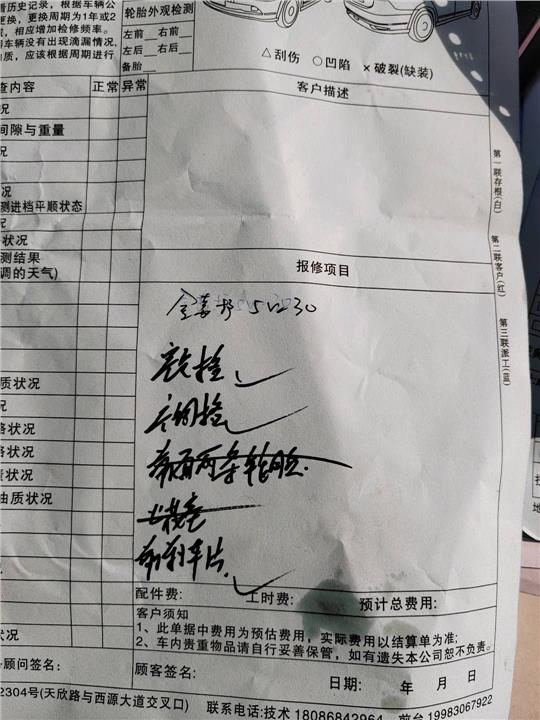 看历史记录，根据车辆公
更换，更换周期为1年或2
，相应增加检修频率。
车辆没有出现滴漏情况，
质，应该根据周期进行
轮胎外观检测
左前 右前
左后 右后
备胎
△刮伤 ○凹陷 ×破裂(缺装)
查内容 正常 异常
客户描述
况
间隙与重量
况
况
测进档平顺状态
况
状况
测结果
调的天气)
报修项目
5W30
质状况
况
路状况
路状况
状况
油质状况
前两条轮胎
前刹车片
第一联存根(白)
第二联客户(红)
第三联派工(蓝)
配件费: 工时费: 预计总费用:
客户须知
1、此单据中费用为预估费用，实际费用以结算单为准;
2、车内贵重物品请自行妥善保管，如有遗失本公司恕不负责。
状况
顾问签名: 顾客签名: 日期: 年 月 日
2304号(天欣路与西源大道交叉口)
联系电话:技术 18086842964 前台 19983067922